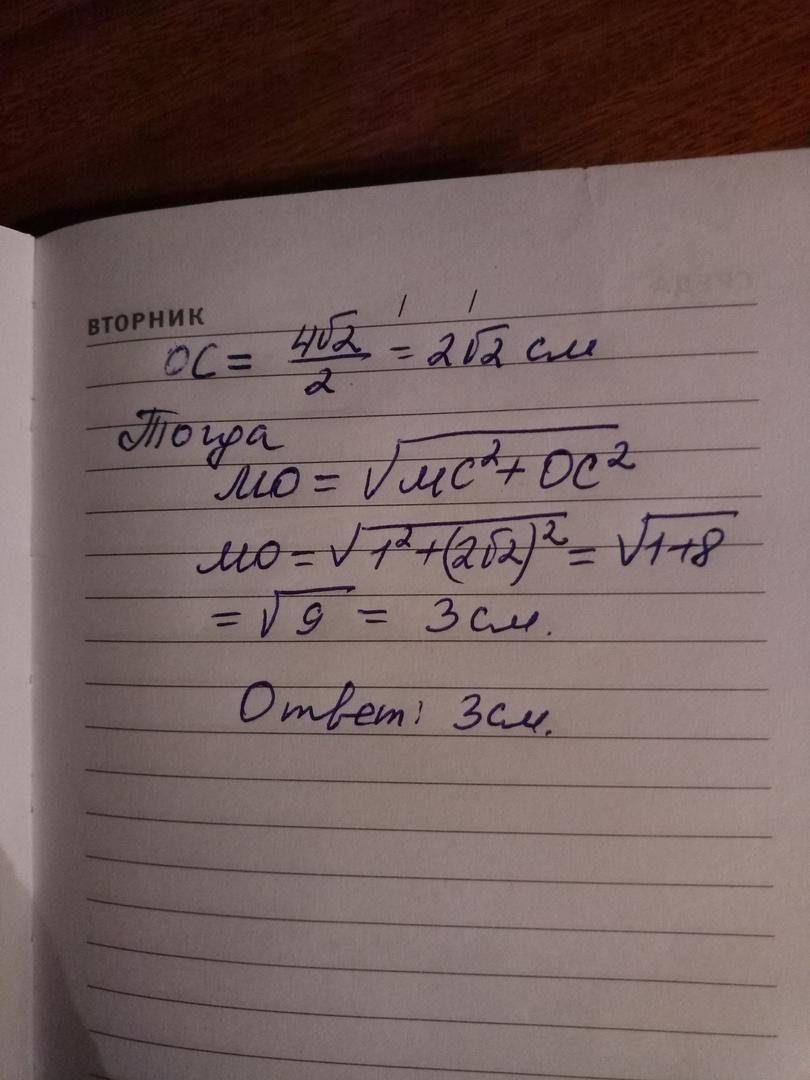 ВТОРНИК
OC = 4√2/2 = 2√2 см
Тогда
MO = √MC²+OC²
MO = √1²+(2√2)² = √1+8
= √9 = 3 см.
Ответ: 3 см.